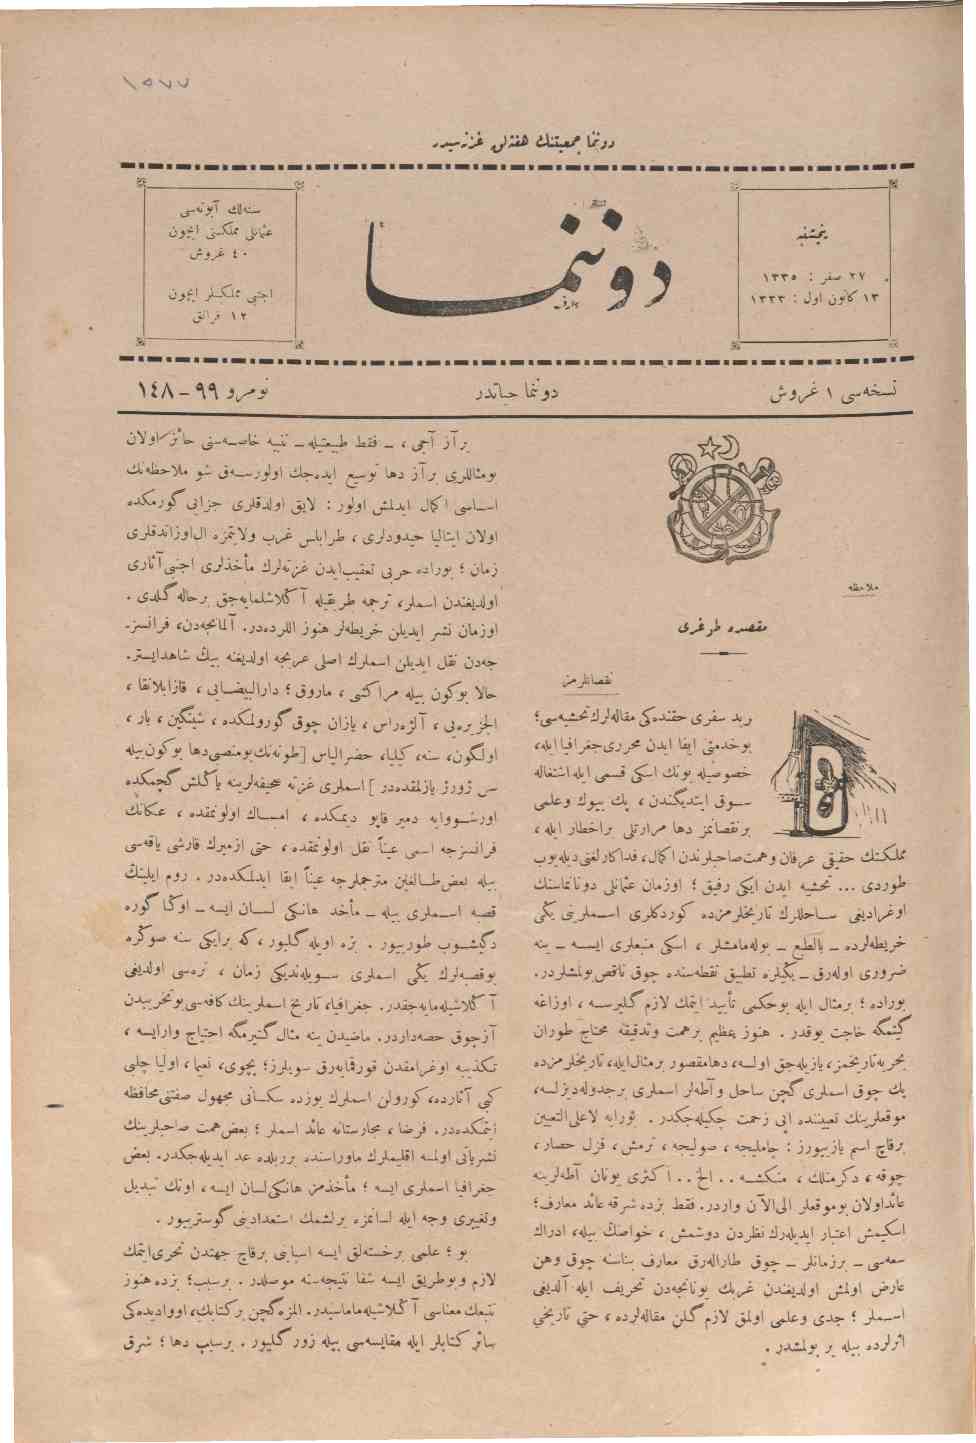 ١٥٧٧
دوننما جمعيتنك هفته‌لق غزته‌سيدر
پنجشنبه
٢٧ صفر : ١٣٣٥
١٣ كانون اول : ١٣٣٣
دوننما
سنه‌لك آبونه‌سى
عثمانلى مملكتى ايچون
٤٠ غروش
اجنبى مملكتلر ايچون
١٢ فرانق
نسخه‌سى ١ غروش
دوننما حياتدر
نومرو ٩٩ – ١٤٨
ملاحظه
مقصده طوغرى
نقصانلرمز
ربد سفرى حقنده‌كى مقاله‌لرك تحشيه‌سى؛
بوخدمتى ايفا ايدن محررى جغرافيا ايله،
خصوصيله بونك اسكى قسمى ايله اشتغاله
سوق ايتديكندن، پك بيوك وعلمى
برنقصانمز دها مرارتلى براخطار ايله،
مملكتك حقيقى عرفان وهمت صاحبلرندن اكمال، فداكارلغنى ديله‌يوب
طوردى ... تحشيه ايدن ايكى رفيق؛ اوزمان عثمانلى دونانماسنك
اوغراديغى ساحللرك تاريخلرمزده كوردكلرى اسملرنى يكى
خريطه‌لرده ـ بالطبع ـ بوله‌مامشلر، اسكى منبعلرى ايسه ـ ينه
ضرورى اوله‌رق ـ يكيلره تطبيق نقطه‌سنده چوق ناقص بولمشلردر.
بوراده؛ برمثال ايله بوحكمى تأييد ايتمك لازم كليرسه، اوزاغه
كيتمكه حاجت يوقدر. هنوز عظيم برهمت وتدقيقه محتاج طوران
بحريه تاريخمز، يازيله‌جق اولسه، دها مقصور برمثال ايله، تاريخلرمزده
پك چوق اسملرى كچن ساحل و آطه‌لر اسملرى برجدوله ديزلسه،
موقعلرينك تعييننده ايى زحمت چكيله‌جكدر. بورايه لاعلى‌التعيين
برقاچ اسم يازييورز : چامليجه، صوليجه، ترمش، قزل حصار،
چوقه، دكرمنلك، منكشه .. الخ .. اكثرى يونان آطه‌لرينه
عائد اولان بوموقعلر الى‌الآن واردر. فقط بزده شرقه عائد معارف؛
اسكيمش اعتبار ايديله‌رك نظردن دوشمش، خواصك بيله، ادراك
سعه‌سى ـ برزمانلر ـ چوق طاراله‌رق معارف بناسنه چوق وهن
عارض اولمش اولديغندن غربك يونانجه‌دن تحريف ايله آلديغى
اسملر؛ جدى وعلمى اولمق لازم كلن مقاله‌لرده، حتى تاريخى
اثرلرده بيله ير بولمشدر.
برآز آجى، ـ فقط طبيعتيله ـ تنبيه خاصه‌سنى حائز اولان
بومثاللرى برآز دها توسيع ايده‌جك اولورسه‌ق شو ملاحظه‌نك
اساسى اكمال ايدلمش اولور : لايق اولدقلرى جزايى كورمكده
اولان ايتاليا حيدودلرى، طرابلس غرب ولايتمزه ال اوزاتدقلرى
زمان؛ بوراده حربى تعقيب ايدن غزته‌لرك مأخذلرى اجنبى آثارى
اولديغندن اسملر، ترجمه طريقيله آكلاشلمايه‌جق برحاله كلدى.
اوزمان نشر ايديلن خريطه‌لر هنوز اللرده‌در. آلمانجه‌دن، فرانسز-
جه‌دن نقل ايديلن اسملرك اصلى عربجه اولديغنه بيك شاهد ايستر.
حالا بوكون بيله مراكشى، ماروق؛ دارالبيضايى، قازابلانقا،
الجزيره‌يى، آلژه‌راس، يازان چوق كورولمكده، شپتگين، بار،
اولگون، سنه، كيليا، حضرالياس [طونه‌نك بومنصبى دها بوكون بيله
سن ژورژ يازلمقده‌در] اسملرى غزته صحيفه‌لرينه ياكلش كچمكده
اورشووايه دمير قاپو ديمكده، امساك اولونمقده، عكانك
فرانسزجه اسمى عيناً نقل اولونمقده، حتى ازميرك قارشى ياقه‌سى
بيله بعض طالغين مترجملرجه عيناً ابقا ايدلمكده‌در. روم ايلينك
قصبه اسملرى بيله ـ مأخد هانكى لسان ايسه ـ اوكا كوره
دكيشوب طورييور. بزه اويله كليور، كه برايكى سنه صوكره
بوقصبه‌لرك يكى اسملرى سويله‌نديكى زمان، نره‌سى اولديغى
آكلاشيله‌مايه‌جقدر. جغرافيا، تاريخ اسملرينك كافه‌سى بوتخريبدن
آزچوق حصه‌داردر. ماضيدن ينه مثال كتيرمكه احتياج وارايسه،
تكذيبه اوغرامقدن قورقمايه‌رق سويلرز؛ پچوى، نعيما، اوليا چلبى
كبى آثارده، كورولن اسملرك يوزده سكسانى مجهول صفتنى محافظه
ايتمكده‌در. فرضا، مجارستانه عائد اسملر؛ بعض همت صاحبلرينك
نشرياتى اولمسه اقليملرك ماوراسنده بريلده عد ايديله‌جكدر. بعض
جغرافيا اسملرى ايسه؛ مأخذمز هانكى لسان ايسه، اونك تبديل
وتغييرى وجه ايله لسانمزه يرلشمك استعدادينى كوسترييور.
بو؛ علمى برخسته‌لق ايسه اسبابنى برقاچ جهتدن تحرى ايتمك
لازم وبوطريق ايسه شفا نتيجه‌سنه موصلدر. برسبب؛ بزده هنوز
تتبعك معناسى آكلاشيله‌مامسيدر. المزه كچن بركتابك، اووادیده‌كى
سائر كتابلر ايله مقايسه‌سى بيله زور كليور. برسبب دها؛ شرق